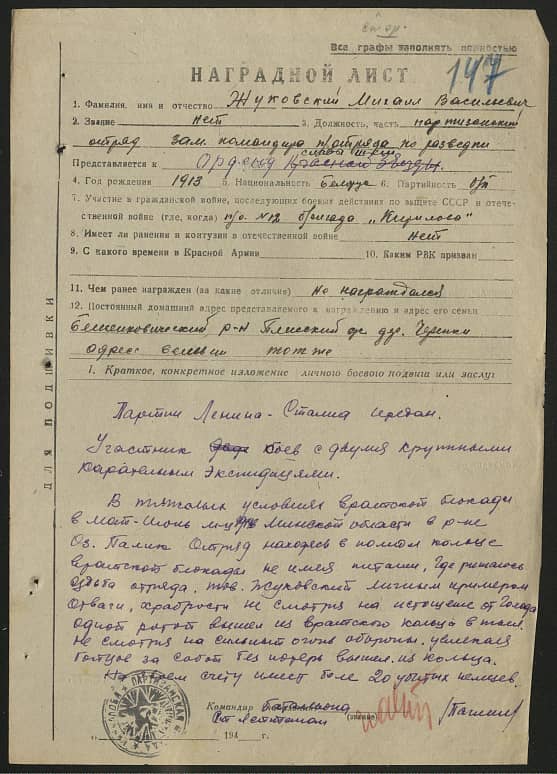 Все графы заполнять полностью
147
НАГРАДНОЙ ЛИСТ
1. Фамилия, имя и отчество Жуковский Михаил Васильевич
2. Звание нет 3. Должность, часть партизанский
отряд зам. командира п/отряда по разведки
славы III ст.
Представляется к Орденом Красной Звезды
4. Год рождения 1913 5. Национальность Белорус 6. Партийность б/п
7. Участие в гражданской войне, последующих боевых действиях по защите СССР и отече-
ственной войне (где, когда) п/о №12 бригада „Кирилова"
8. Имеет ли ранения и контузии в отечественной войне нет
9. С какого времени в Красной Армии 10. Каким РВК призван
11. Чем ранее награжден (за какие отличия) не награждался
12. Постоянный домашний адрес представляемого к награждению и адрес его семьи
Бешенковический р-н Плисский с/с дер.
адрес семьи тот же
I. Краткое, конкретное изложение личного боевого подвига или заслуг
ДЛЯ ПОДШИВКИ
Партии Ленина-Сталина предан.
Участник боев с двумя крупными
карательными экспидициями.
В тяжолых условиях вражской блокады
в мае-Июнь Минской области в р-не
Оз. Палик Отряд находясь в полном кольце
вражской блокады не имея питания, где решалось
судьба отряда, тов. Жуковский личным примером
Отваги, храбрости не смотря на истощение от Голода
одной ротой вышел из вражского кольца в тыл.
не смотря на сильный огонь обороны, увлекая
бойцов за собой без потерь вышел из кольца.
На своем счету имеет боле 20 убитых немцев.
Командир батальона
(звание)
Ст лейтенант
„ " 194 г.